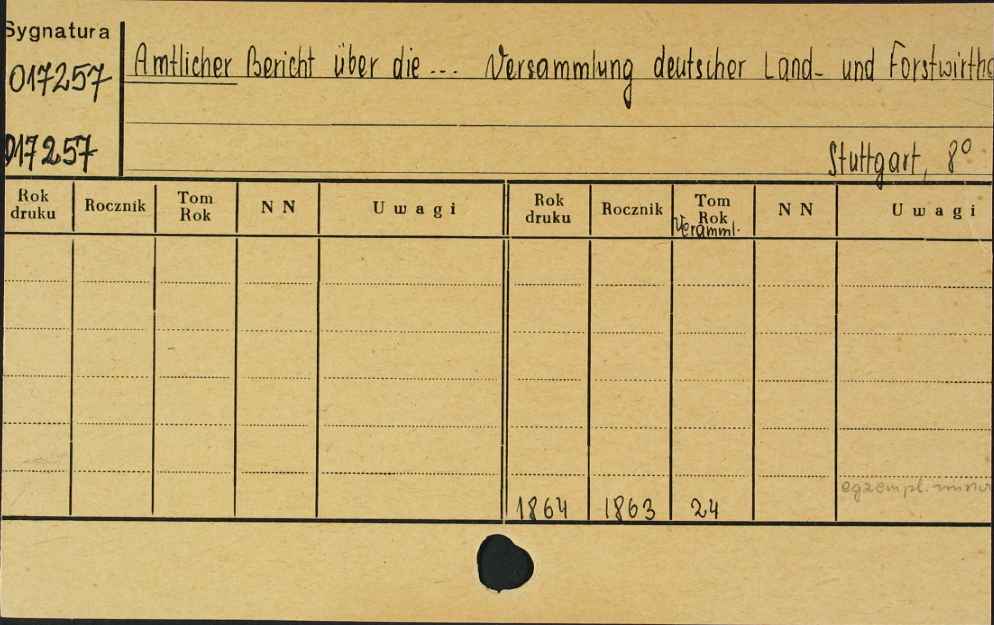 Sygnatura
017257
Amtlicher Bericht über die ... Versammlung deutscher Land- und Forstwirthe
017257
Stuttgart, 8°
Rok druku Rocznik Tom Rok NN Uwagi Rok druku Rocznik Tom Rok Veramml. NN Uwagi
egzempl.
1864 1863 24